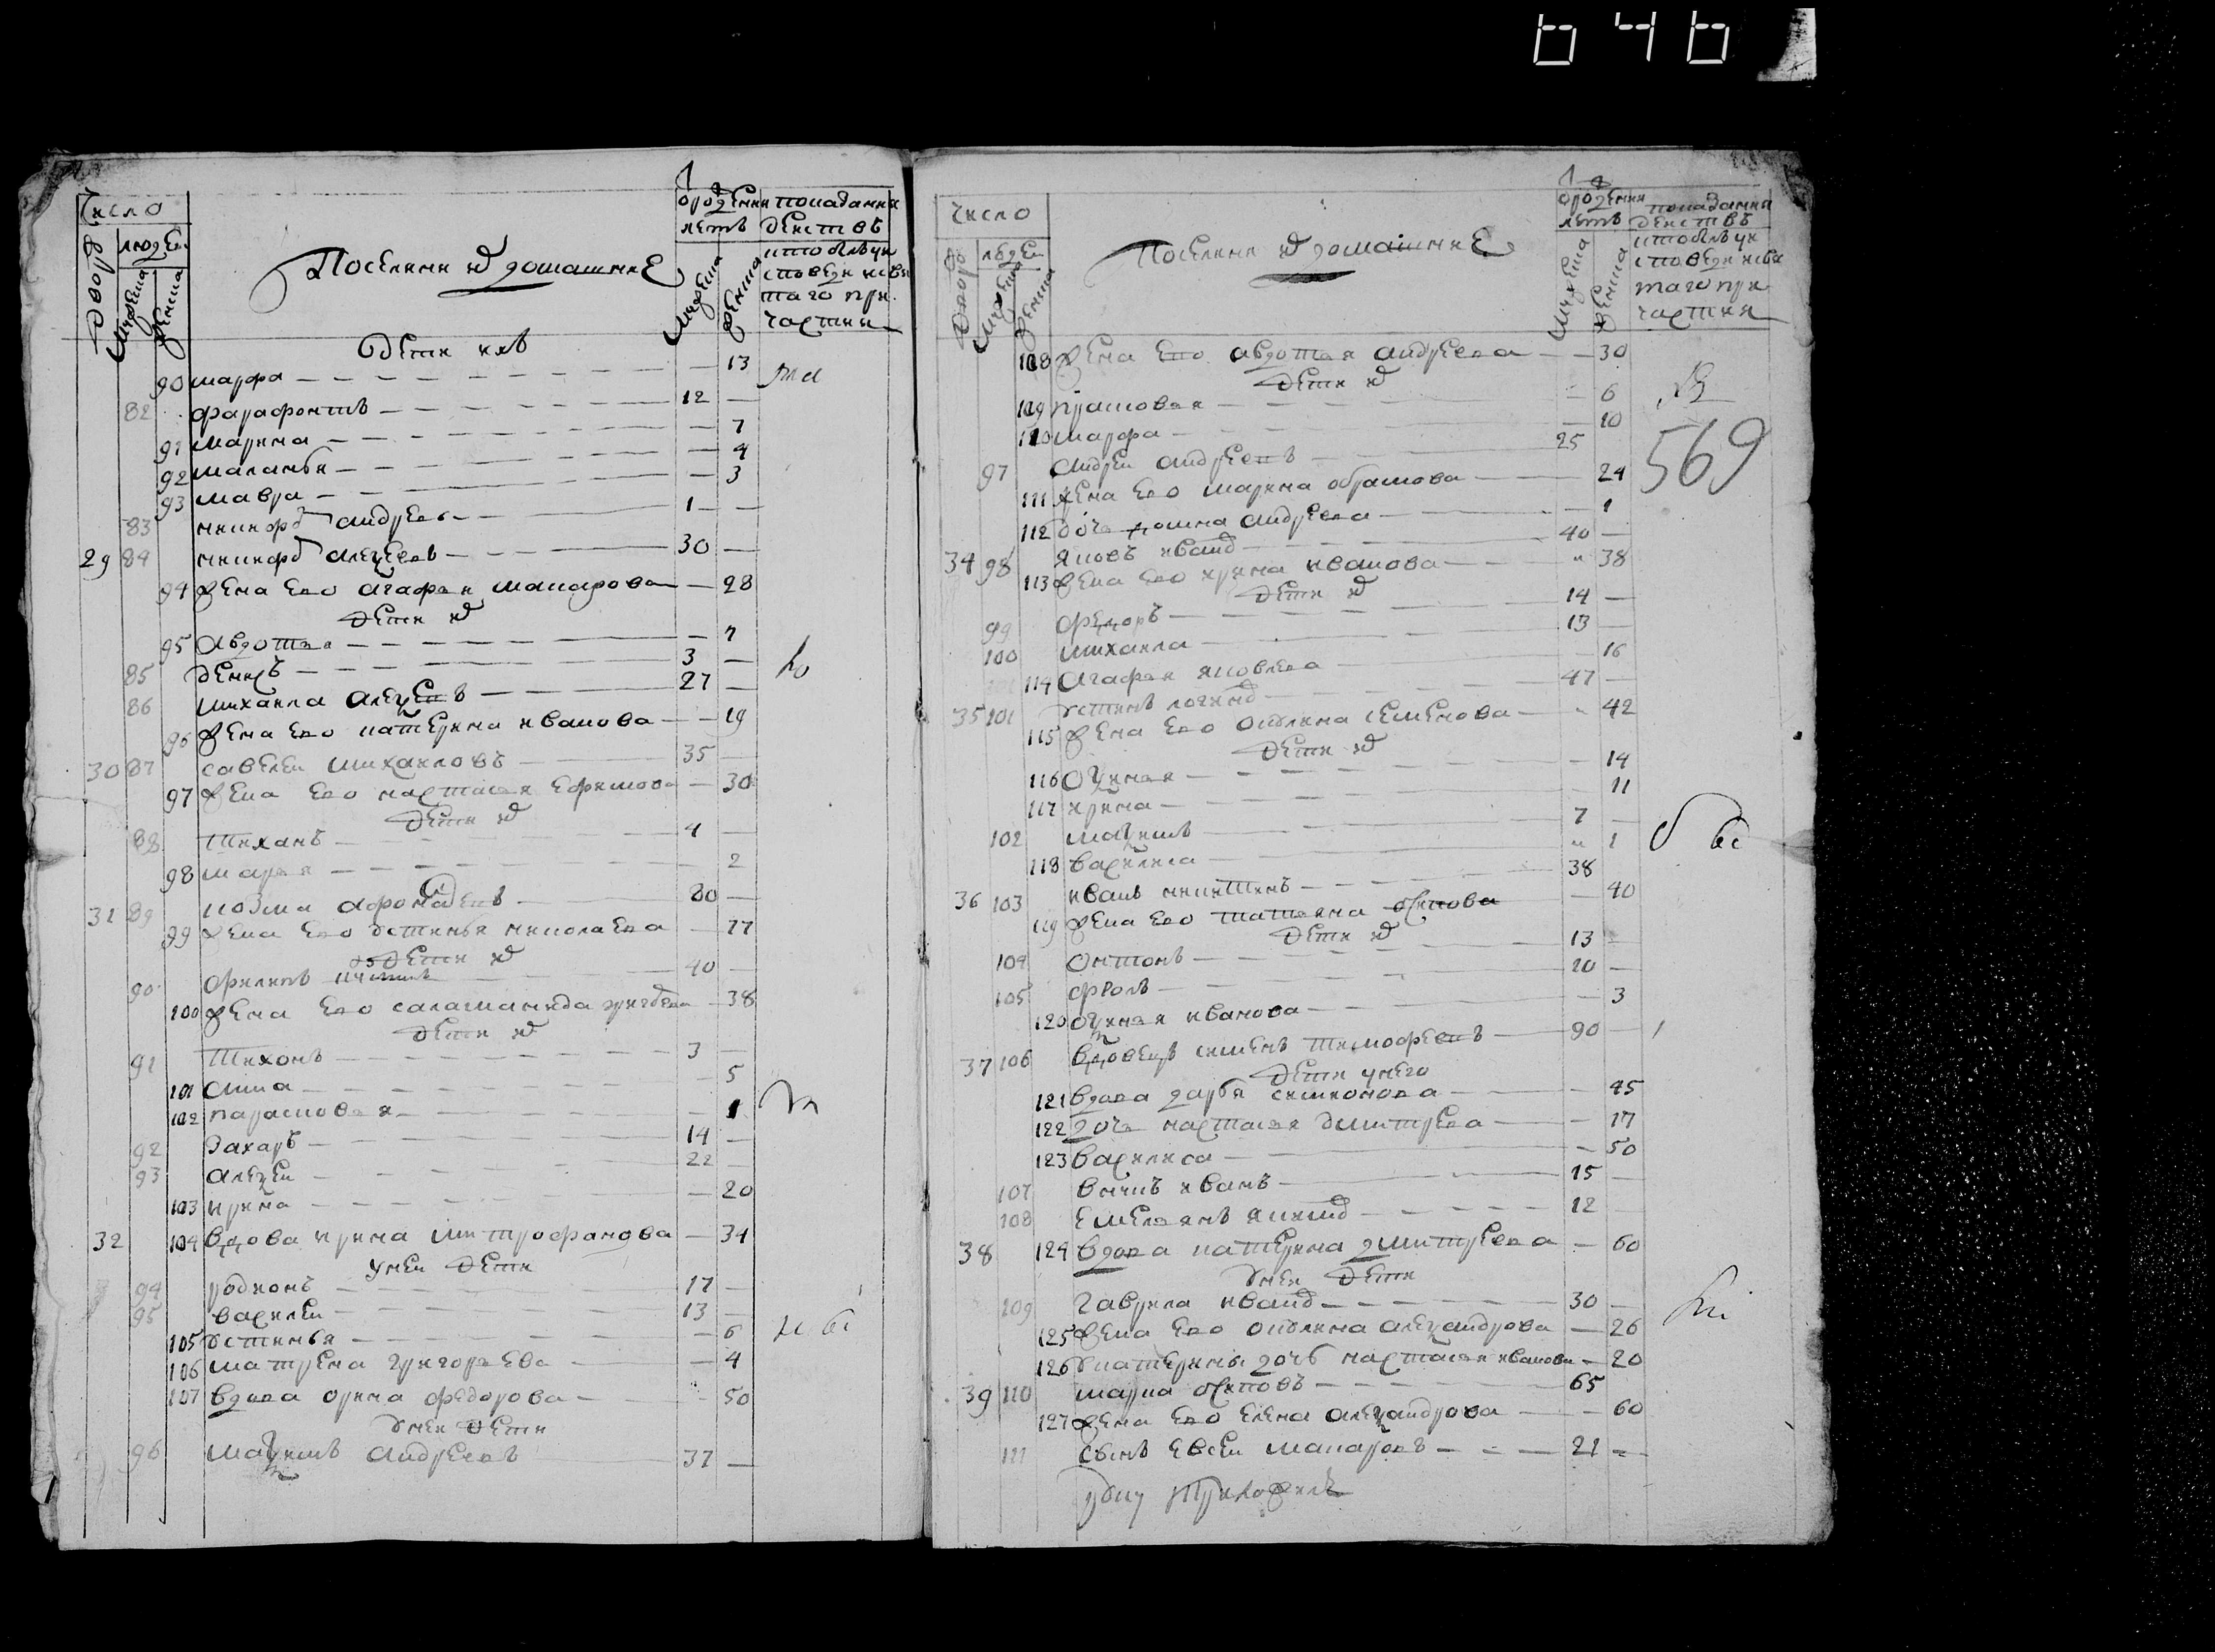 646
Число
дворов
людей
мужеска
женска
Поселяня и домашние
от рождения
летъ
мужеска
женска
показания
действъ
кто былъ у ис
поведи и свя
таго при
частия
дети ихъ
90 марфа 13
82 фарафонтъ 12
91 марина 7
92 маланья 4
93 мавра 3
83 никифоръ андреевъ 1
29 84 никифоръ алексеевъ 30
94 жена ево агафья макарова 28
дети их
95 авдотья 7
85 денисъ 3
86 михаила алексеевъ 27
96 жена ево катерина иванова 19
30 87 савелей михаиловъ 35
97 жена ево настасья ефимова 30
дети их
88 тиханъ 4
98 марья 2
31 89 козма афонасьевъ 80
99 жена ево устинья николаева 77
дети их
90 филипъ 40
100 жена ево саламанида 38
дети их
91 тихонъ 3
101 анна 5
102 парасковья 1
92 захаръ 14
93 алексей 22
103 ирина 20
32 104 вдова ирина митрофанова 34
у ней дети
94 родионъ 17
95 василей 13
105 устинья 6
106 матрена григорьева 4
107 вдова орина федорова 50
у ней дети
96 максимъ андреевъ 37
Число
дворов
людей
мужеска
женска
Поселяня и домашние
от рождения
летъ
мужеска
женска
показания
действъ
кто былъ у ис
поведи и свя
таго при
частия
108 жена ево авдотья андреева 30
дети их
109 прасковья 6
110 марфа 10
569
97 андрей андреевъ 25
111 жена ево марина абрамова 24
112 дочь домна андреева 1
34 98 яковъ иванов 40
113 жена ево ирина иванова 38
дети их
99 федоръ 14
100 михаила 13
114 агафья яковлева 16
35 101 устинъ логинов 47
115 жена ево акулина семенова 42
дети их
116 оксинья 14
117 ирина 11
102 максимъ 7
118 василиса 1
36 103 иванъ никитинъ 38
119 жена ево татьяна осипова 40
дети их
104 онтонъ 13
105 фролъ 10
120 оксинья иванова 3
37 106 вдовецъ семенъ тимофеевъ 90
дети у него
121 вдова дарья симионова 45
122 дочь настасья дмитрева 17
123 василиса 50
107 внукъ иванъ 15
108 емельянъ якимов 12
38 124 вдова катерина дмитреева 60
у ней дети
109 гаврила иванов 30
125 жена ево акулина александрова 26
126 у катерины дочь настасья иванова 20
39 110 марка осиповъ 65
127 жена ево елена александрова 60
111 сынъ евсей макаровъ 21